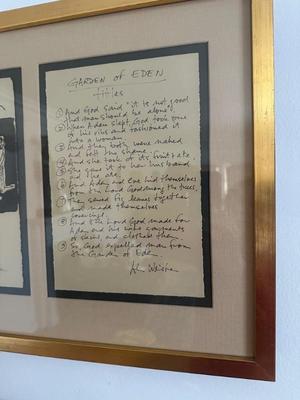 GARDEN of EDEN
titles
① And God said "it is not good
that man should be alone"
② When Adam slept, God took one
of his ribs and fashioned it
into a woman.
③ And they both were naked
and felt no shame.
④ And she took of its fruit + ate.
⑤ She gave it to her husband
and he ate.
⑥ And Adam and Eve hid themselves
from the Lord God among the trees.
⑦ They sewed fig leaves together
and made themselves
coverings.
⑧ And the Lord God made for
Adam and his wife garments
of skins, and clothed them
⑨ So, God expelled man from
the Garden of Eden.